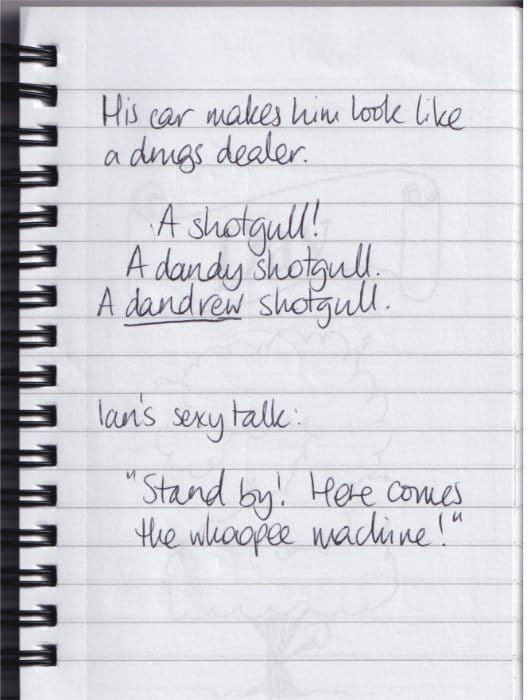 His car makes him look like
a drugs dealer.
A shotgull!
A dandy shotgull.
A dandrew shotgull.
Ian's sexy talk:
"Stand by! Here comes
the whoopee machine!"